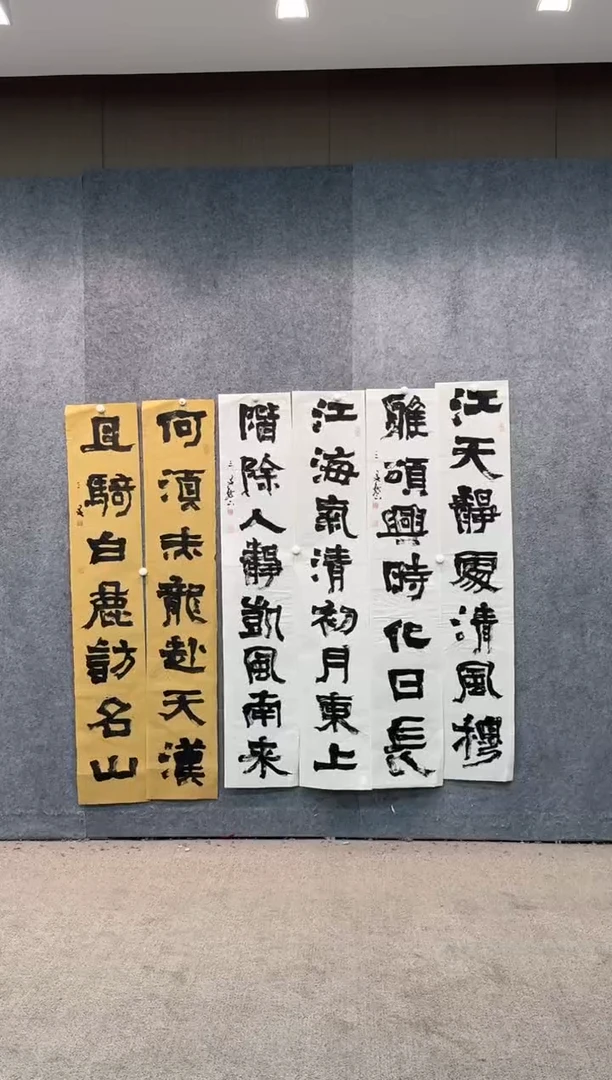 江天靜處清風穆
雅頌興時化日長
江海氣清初月東上
階除人靜凱風南来
何湏赤龍赴天漢
且騎白鹿訪名山